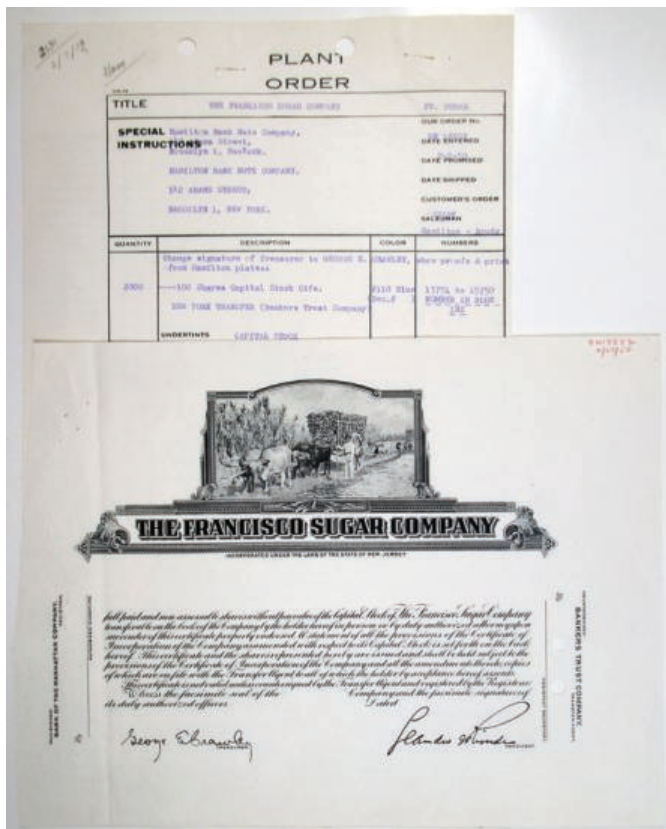 PLANT
ORDER
TITLE THE FRANCISCO SUGAR COMPANY
SPECIAL Hamilton Bank Note Company,
INSTRUCTIONS Street,
Brooklyn 1, New York.
HAMILTON BANK NOTE COMPANY,
142 ADAMS STREET,
BROOKLYN 1, NEW YORK.
OUR ORDER No.
DATE ENTERED
DATE PROMISED
DATE SHIPPED
CUSTOMER'S ORDER
SALESMAN
Hamilton -
QUANTITY DESCRIPTION COLOR NUMBERS
Change signature of Treasurer to GEORGE E. CRAWLEY, show proofs & print
from Hamilton plates.
2000 ---100 Shares Capital Stock Ctfs. Blue
NEW YORK TRANSFER (Bankers Trust Company) NUMBER IN BLUE
INK
UNDERTINTS CAPITAL STOCK
THE FRANCISCO SUGAR COMPANY
INCORPORATED UNDER THE LAWS OF THE STATE OF NEW JERSEY
full paid and non-assessable shares without par value of the Capital Stock of The Francisco Sugar Company
transferable on the books of the Company by the holder hereof in person or by duly authorized attorney upon
surrender of this certificate properly endorsed. A statement of all the provisions of the Certificate of
Incorporation of the Company as amended with respect to its Capital Stock is set forth on the back
hereof. This certificate and the shares represented hereby are issued and shall be held subject to the
provisions of the Certificate of Incorporation of the Company and all the amendments thereto, copies
of which are on file with the Transfer Agent to all of which the holder by acceptance hereof assents.
This certificate is not valid unless countersigned by the Transfer Agent and registered by the Registrar.
Witness the facsimile seal of the Company and the facsimile signatures of
its duly authorized officers. Dated
George E Crawley
TREASURER
PRESIDENT
BANK OF THE MANHATTAN COMPANY,
REGISTRAR
AUTHORIZED SIGNATURE
COUNTERSIGNED
BANKERS TRUST COMPANY
TRANSFER AGENT